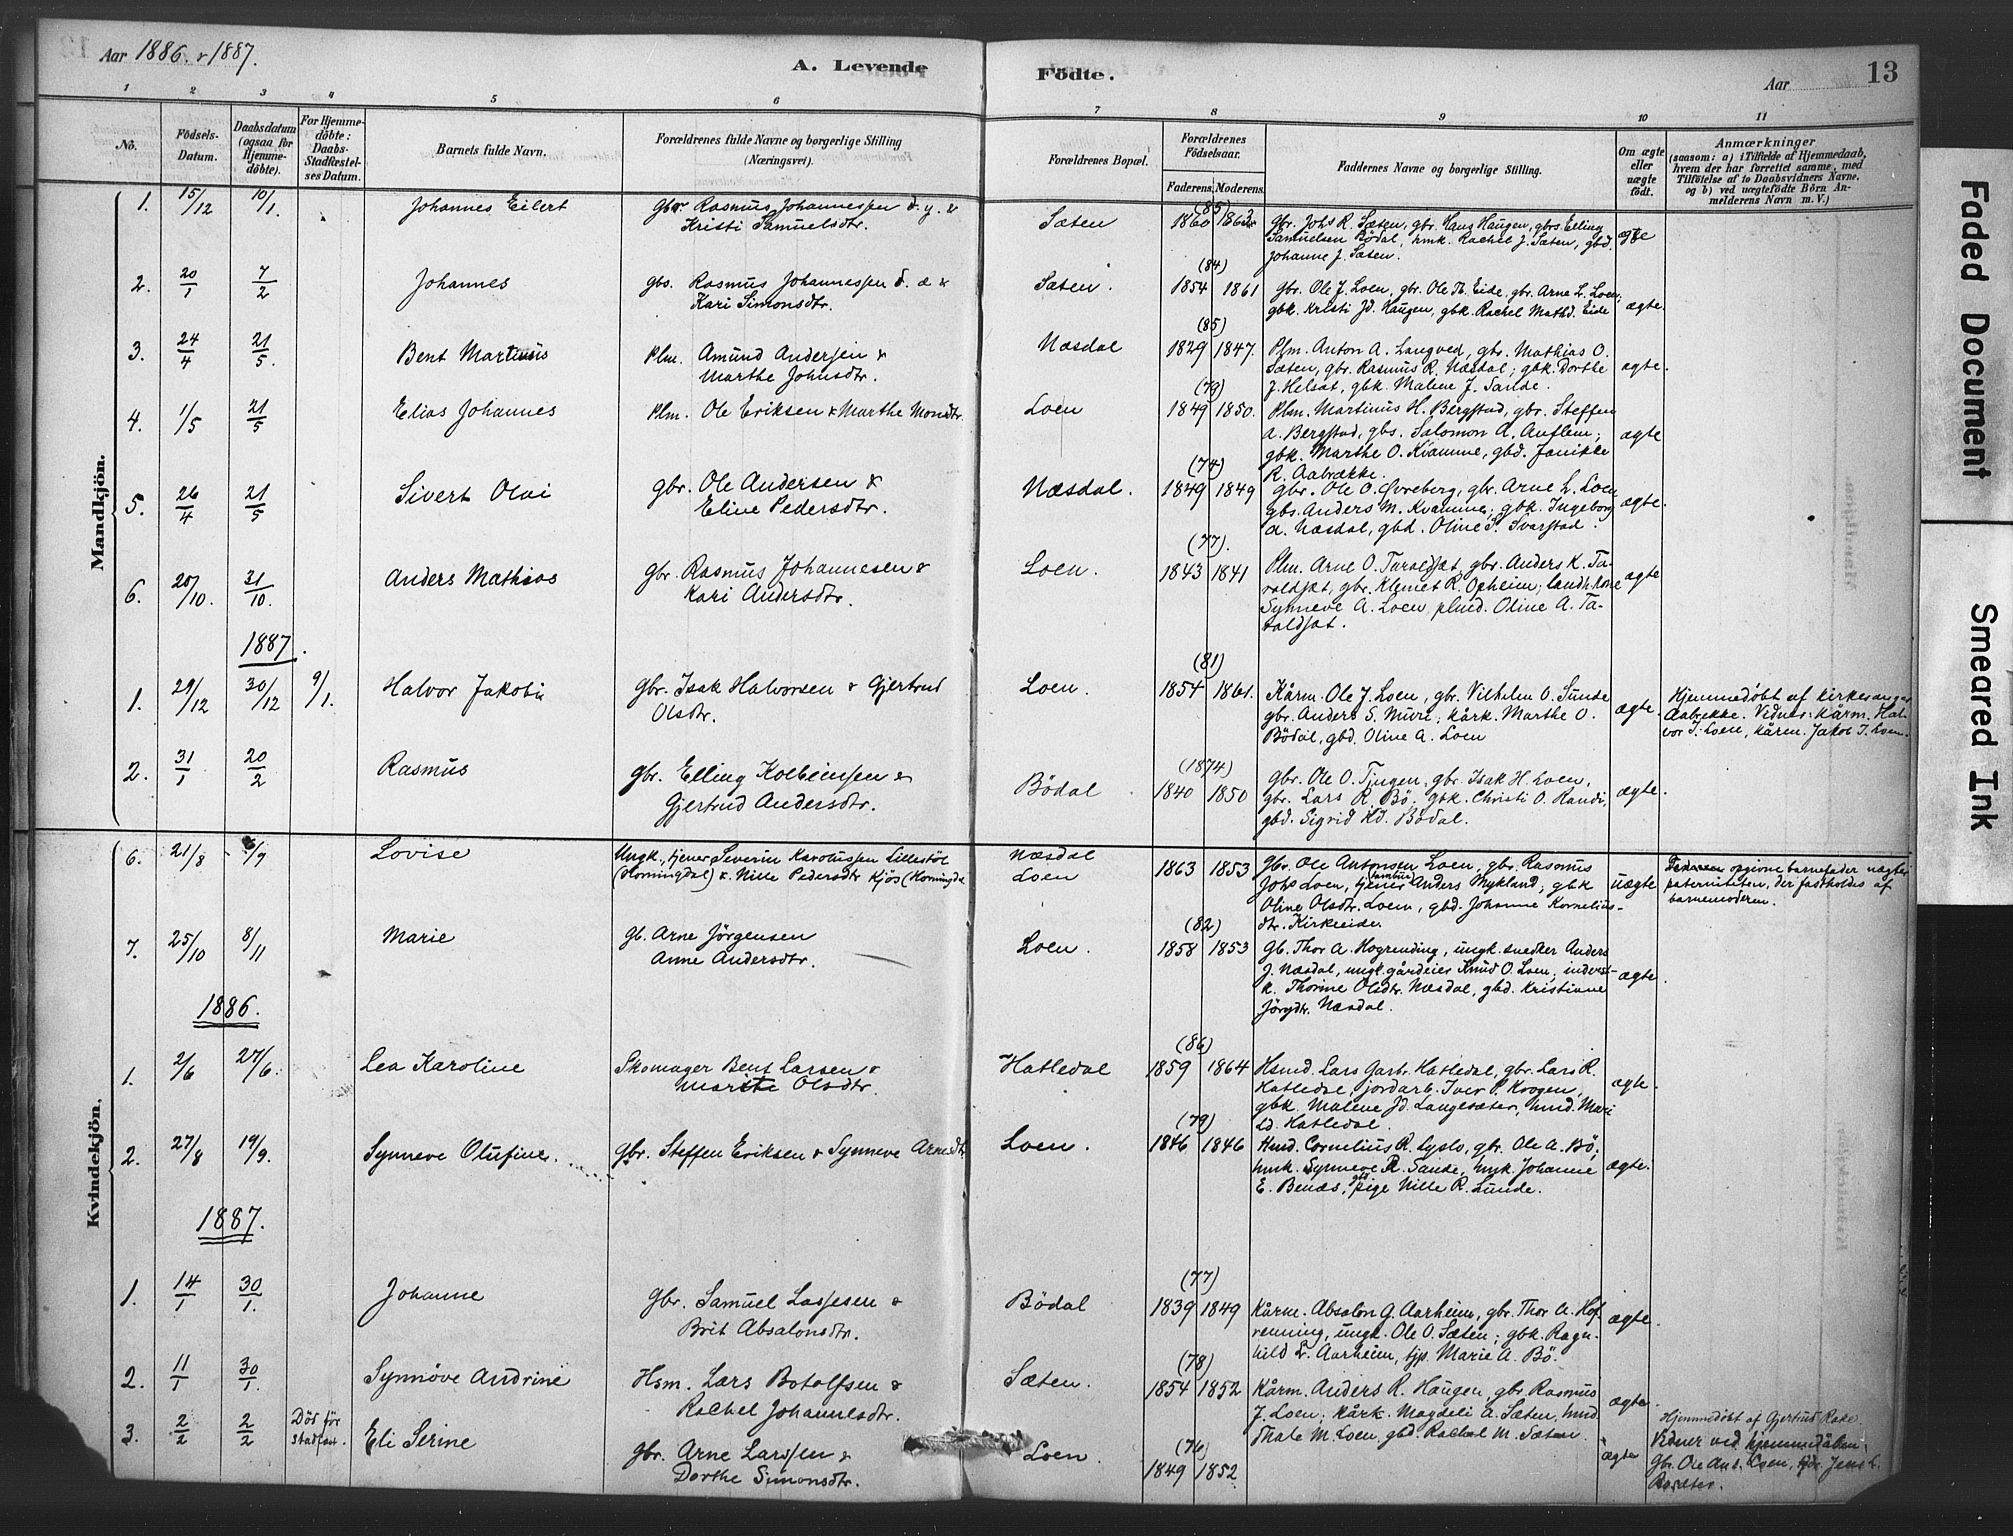 Aar 1886 & 1887.
A. Levende
Födte.
Aar
13
1 2 3 4 5 6 7 8 9 10 11
No.
Födsels-
Datum.
Daabsdatum
(ogsaa for
Hjemme-
döbte).
For Hjemme-
döbte:
Daabs-
Stadfæstel-
ses Datum.
Barnets fulde Navn.
Forældrenes fulde Navne og borgerlige Stilling
(Næringsvei).
Forældrenes Bopæl.
Forældrenes
Födselsaar.
Faderens. Moderens.
Faddernes Navne og borgerlige Stilling.
Om ægte
eller
uægte
födt.
Anmærkninger
(saasom: a) i Tilfælde af Hjemmedaab,
hvem der har forrettet samme, med
Tilföielse af to Daabsvidners Navne,
og b) ved uægtefödte Börn An-
melderens Navn m. V.)
Mandkjön.
1. 15/12 10/1. Johannes Eilert
Gbr. Rasmus Johannessen d. y. &
Kristi Samuelsdtr.
Sæten
(85)
1860 1863
gbr. Johs R. Sæten, gbr. Hans Haugen, gbrs. Elling
Samuelsen Bödal, hmk. Rachel J. Sæten, gbd.
Johanne J. Sæten.
ægte
2. 20/1 7/2 Johannes
gbs. Rasmus Johannessen d. æ &
Kari Simonsdtr.
Sæten.
(84)
1854 1861
gbr. Ole J. Loen, gbr. Ole Th. Eide, gbr. Arne L. Loen;
gbk. Kristi Jd. Haugen, gbk. Rachel Mathd. Eide
ægte.
3. 24/4 21/5. Bent Martinus
Plm. Amund Andersen &
Marthe Johnsdtr.
Næsdal
(85)
1829 1847.
Plm. Anton A. Langved, gbr. Mathias O.
Sæten, gbr. Rasmus R. Næsdal; gbk. Dorthe
J. Helsæt, gbk. Malene J. Sande.
ægte.
4. 1/5 21/5 Elias Johannes
Plm. Ole Eriksen & Marthe Monsdtr.
Loen
(73)
1849 1850.
Plm. Martinus H. Bergstad, gbr. Steffen
A. Bergstad, gbs. Salomon A. Auflem;
gbk. Marthe O. Kvamme, gbd. Janikke
R. Aabrække.
ægte
5. 26/4 21/5 Sivert Olai
gbr. Ole Andersen &
Eline Pedersdtr.
Næsdal.
(74)
1849 1849
gbr. Ole O. Øvreberg, gbr. Arne L. Loen
gbs. Anders M. Kvamme; gbk. Ingeborg
A. Næsdal, gbd. Oline S. Svarstad.
ægte.
6. 20/10. 31/10. Anders Mathias
Gbr. Rasmus Johannesen &
Kari Andersdtr.
Loen.
(77).
1843 1841
Plm. Arne O. Taraldset, gbr. Anders K. Ta-
raldset, gbr. Klemet R. Opheim; landh. kone
Synneve A. Loen, plmd. Oline A. Ta-
raldset.
ægte
1887.
1. 29/12 30/12 9/1. Halvor Jakob
Gbr. Isak Halvorsen & Gjertrud
Olsdtr.
Loen.
(81)
1854 1861.
Kårm. Ole J. Loen, gbr. Vilhelm O. Sunde
gbr. Anders S. Muri, kårk. Marthe O.
Bödal, gbd. Oline A. Loen
ægte.
Hjemmedöbt af kirkesanger
Aabrekke. Vidner: kårm. Hal-
vor I. Loen, kårm. Jakob I. Loen.
2. 31/1 20/2 Rasmus
gbr. Elling Kolbeinsen &
Gjertrud Andersdtr.
Bödal
(1874)
1840 1850
gbr. Ole O. Tjugen, gbr. Isak H. Loen,
gbr. Lars R. Bö, gbk. Christi O. Rand,
gbd. Sigrid Kd. Bödal.
ægte.
Kvindekjön.
6. 21/8 /9 Lovise
Ungk., tjener Severin Karolussen Lillestöl
(Horningdal) & Nille Pedersdtr Kjös (Horningda
Næsdal
Loen
1863 1853
Gbr. Ole Antonsen Loen, gbr. Rasmus
Johs Loen, tjener Anders Mykland, gbk
Oline Olsdtr. Loen, gbd. Johanne Kornelius-
dtr. Kirkeeide.
uægte
opgivne barnefader nægter
paterniteten, der fastholdes af
barnemoderen.
7. 25/10 8/11 Marie
Gb. Arne Jörgensen
Anne Andersdtr.
Loen.
(82)
1858 1853
Gb. Thor A. Hogrending, ungk. snedker Anders
J. Næsdal, ungk. gårdeier Knud O. Loen; inderst-
k. Thorine Olsdtr. Næsdal, gbd. Kristiane
Jörgdtr. Næsdal.
ægte.
1886.
1. 2/6 27/6. Lea Karoline
Skomager Bent Larsen &
Marite Olsdtr.
Hatledal
(86)
1859 1864
Hsmd. Lars Garb. Hatledal, gbr. Lars R.
Hatledal, jordarb. Iver P. Krogen,
gbk. Malene Jd. Langesæter, hmd. Mari
Ld. Hatledal.
ægte.
2. 27/8 19/9. Synneve Olufine
Gbr. Steffen Eriksen & Synneve Arnesdtr
Loen.
(79)
1846 1846
Hmd. Cornelius R. Lyslo, gbr. Ole A. Bö;
hmk. Synneve R. Sande, hmk. Johanne
E. Benæs, gbd pige Nille R. Sunde.
ægte.
1887.
1. 14/1 30/1. Johanne
Gbr. Samuel Lassesen &
Brit Absalonsdtr.
Bödal
(77)
1839 1849
Kårm. Absalon G. Aarheim, gbr. Thor A. Hof-
renning, ungk. Ole O. Sæten; gbk. Ragn-
hild L. Aarheim, tjp. Marie A. Bö.
ægte.
2. 11/1 30/1. Synnöve Andrine
Hsm. Lars Botolfsen &
Rachel Johannesdtr.
Sæten.
(78)
1854 1852
Kårm. Anders R. Haugen, gbr. Rasmus
J. Loen; kårk. Magdeli A. Sæten, hmd.
Thale M. Loen, gbd. Rachel M. Sæten.
ægte.
3. 2/2 2/2 Död för
stadfæst. Eli Serine
gbr. Arne Larssen &
Dorthe Simonsdtr.
Loen.
(76)
1849 1852
ægte
Hjemmedöbt af Gjertrud Rake.
Vidner ved hjemmedåben:
Gbr. Ole Ant. Loen, Jens
Rasæter.
Faded Document
Smeared Ink